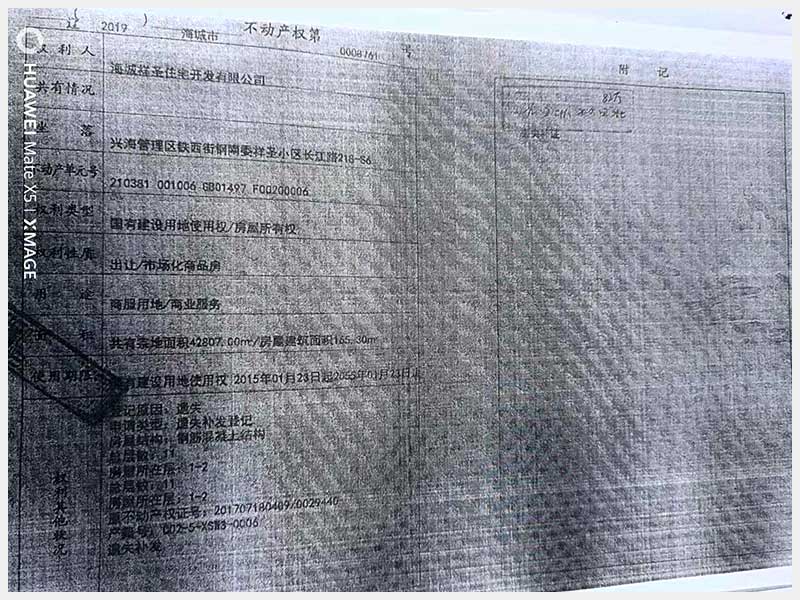 2019
海城市
不动产权第
0008761
号
权利人
海城祥圣住宅开发有限公司
附 记
共有情况
遗失补证
坐 落
兴海管理区铁西街钢南委祥圣小区长江路218-S6
不动产单元号
210381 001006 GB01497 F00200006
权利类型
国有建设用地使用权/房屋所有权
权利性质
出让/市场化商品房
用 途
商服用地/商业服务
面 积
共有宗地面积42807.00㎡/房屋建筑面积165.30㎡
使用期限
国有建设用地使用权 2015年01月23日起2055年01月23日止
登记原因：遗失
申请类型：遗失补发登记
房屋结构：钢筋混凝土结构
总层数：11
房屋所在层：1-2
总层数：11
房屋所在层：1-2
原不动产权证号：201707180409/0029440
产籍号：002-5-XSW3-0006
遗失补发
权利其他状况
HUAWEI Mate X5 | XMAGE